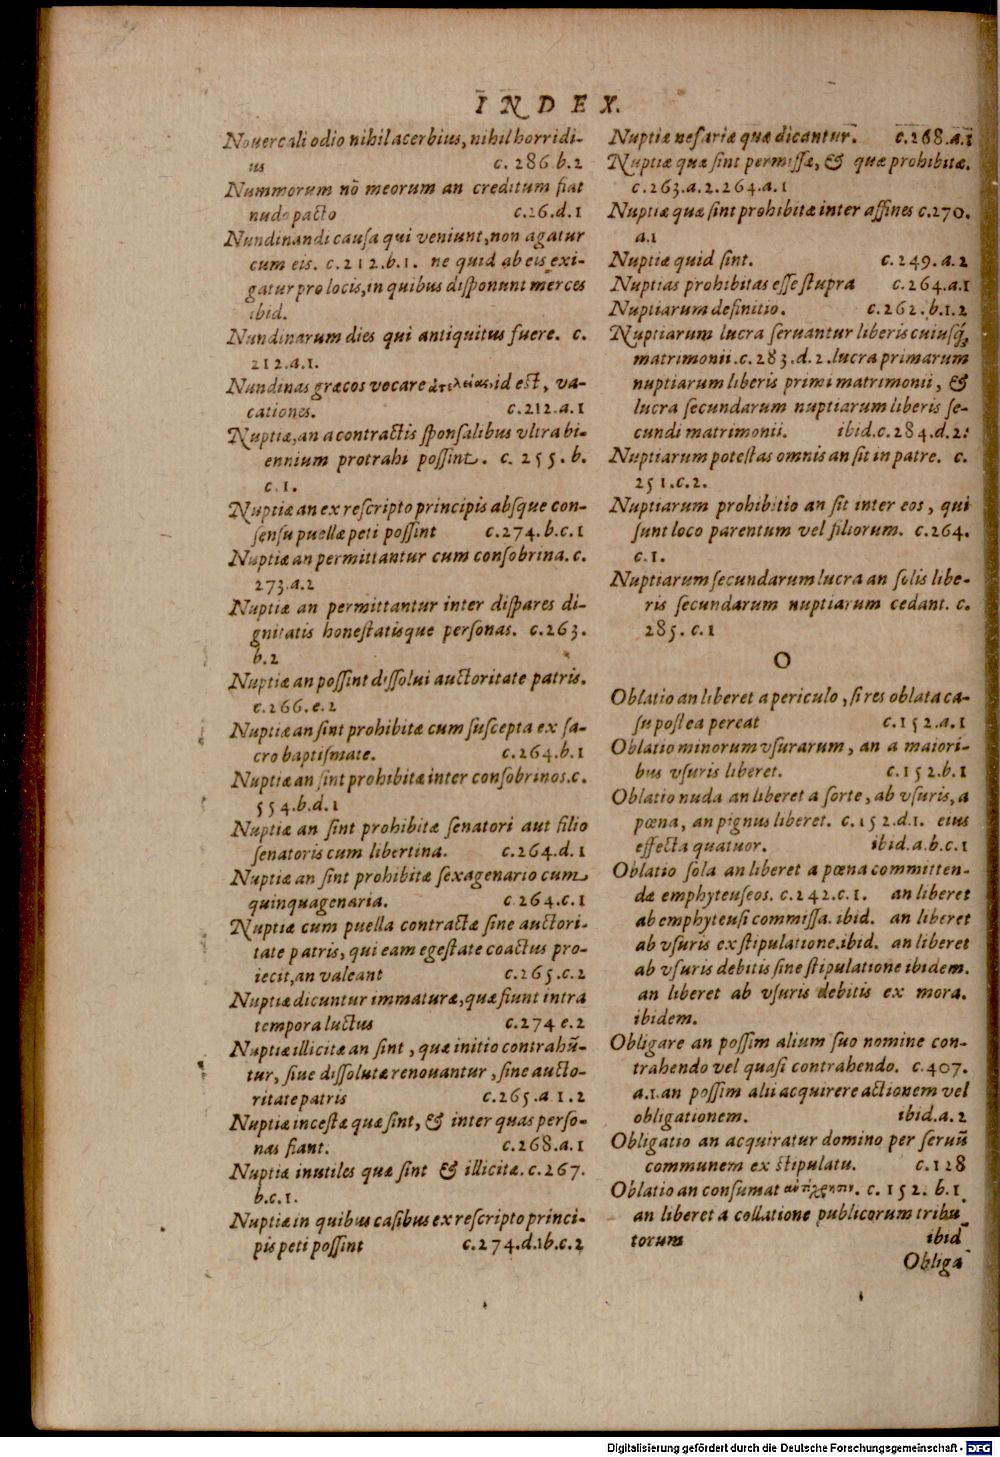 INDEX.
Nouercali odio nihil acerbius, nihil horridi-
us c. 286.b.2
Nummorum nō meorum an creditum fiat
nudo pacto c.26.d.1
Nundinandi causa qui veniunt, non agatur
cum eis. c.212.b.1. ne quid ab eis exi-
gatur pro locis, in quibus disponunt merces
ibid.
Nundinarum dies qui antiquitus fuere. c.
212.a.1.
Nundinas græcos vocare ἀτελείας. id est, va-
cationes. c.212.a.1
Nuptiæ, an a contractis sponsalibus vltra bi-
ennium protrahi possint. c. 255. b.
c.1.
Nuptiæ an ex rescripto principis absque con-
sensu puellæ peti possint c.274.b.c.1
Nuptiæ an permittantur cum consobrina. c.
273.a.2
Nuptiæ an permittantur inter dispares di-
gnitatis honestatisque personas. c.263.
b.2
Nuptiæ an possint dissolui auctoritate patris.
c.266.e.2
Nuptiæ an sint prohibitæ cum suscepta ex sa-
cro baptismate. c.264.b.1
Nuptiæ an sint prohibitæ inter consobrinos. c.
554.b.d.1
Nuptiæ an sint prohibitæ senatori aut filio
senatoris cum libertina. c.264.d.1
Nuptiæ an sint prohibitæ sexagenario cum
quinquagenaria. c.264.c.1
Nuptiæ cum puella contractæ sine auctori-
tate patris, qui eam egestate coactus pro-
iecit, an valeant c.265.c.2
Nuptiæ dicuntur immaturæ, quæ fiunt intra
tempora luctus c.274 e.2
Nuptiæ illicitæ an sint, quæ initio contrahū-
tur, siue dissolutæ renouantur, sine aucto-
ritate patris c.265.a 1.2
Nuptiæ incestæ quæ sint, & inter quas perso-
nas fiant. c.268.a.1
Nuptiæ inutiles quæ sint & illicitæ. c.267.
b.c.1.
Nuptiæ in quibus casibus ex rescripto princi-
pis peti possint c.274.d.1b.c.2
Nuptiæ nefariæ quæ dicantur. c.268.a.1
Nuptiæ quæ sint permissæ, & quæ prohibitæ.
c.263.a.2.264.a.1
Nuptiæ quæ sint prohibitæ inter affines c.270.
a.1
Nuptiæ quid sint. c.249.a.2
Nuptias prohibitas esse stupra c.264.a.1
Nuptiarum definitio. c.262.b.1.2
Nuptiarum lucra seruantur liberis cuiusq;
matrimonii. c.283.d.2. lucra primarum
nuptiarum liberis primi matrimonii, &
lucra secundarum nuptiarum liberis se-
cundi matrimonii. ibid.c.284.d.2:
Nuptiarum potestas omnis an sit in patre. c.
251.c.2.
Nuptiarum prohibitio an sit inter eos, qui
sunt loco parentum vel filiorum. c.264.
c.1.
Nuptiarum secundarum lucra an solis libe-
ris secundarum nuptiarum cedant. c.
285. c.1
O
Oblatio an liberet a periculo, si res oblata ca-
su postea pereat c.152.a.1
Oblatio minorum vsurarum, an a maiori-
bus vsuris liberet. c.152.b.1
Oblatio nuda an liberet a sorte, ab vsuris, a
pœna, an pignus liberet. c.152.d.1. eius
effecta quatuor. ibid.a.b.c.1
Oblatio sola an liberet a pœna committen-
dæ emphyteuseos. c.242.c.1. an liberet
ab emphyteusi commissa. ibid. an liberet
ab vsuris ex stipulatione. ibid. an liberet
ab vsuris debitis sine stipulatione ibidem.
an liberet ab vsuris debitis ex mora.
ibidem.
Obligare an possim alium suo nomine con-
trahendo vel quasi contrahendo. c.407.
a.1. an possim alii acquirere actionem vel
obligationem. ibid.a.2
Obligatio an acquiratur domino per seruū
communem ex stipulatu. c.128
Oblatio an consumat c.152. b.1.
an liberet a collatione publicorum tribu-
torum ibid
Obliga-
Digitalisierung gefördert durch die Deutsche Forschungsgemeinschaft - DFG